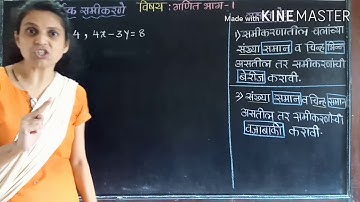 समीकरणे
विषय: गणित भाग-1
4, 4x-3y=8
Made with KINEMASTER
1) समीकरणातील चलांच्या
संख्या समान व चिन्ह भिन्न
असतील तर समीकरणांची
बेरीज करावी.
2) संख्या समान व चिन्ह समान
असतील तर समीकरणांची
वजाबाकी करावी.